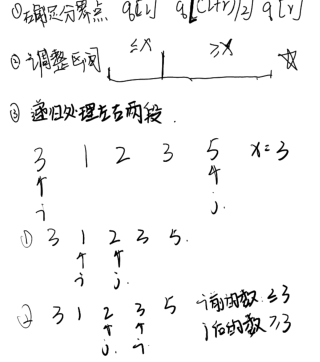 ①确定分界点 q[l] q[(l+r)/2] q[r]
②调整区间 ≤x ≥x ☆
③ 递归处理左右两段.
3 1 2 3 5 x=3
i j.
① 3 1 2 3 5.
i j.
② 3 1 2 3 5 i前的数 ≤3
j后的数 ≥3
j. i.